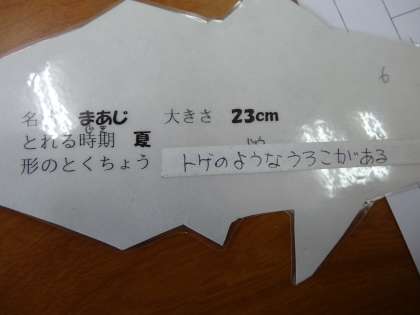 6
名 まあじ 大きさ 23cm
とれる時期 夏
形のとくちょう トゲのようなうろこがある